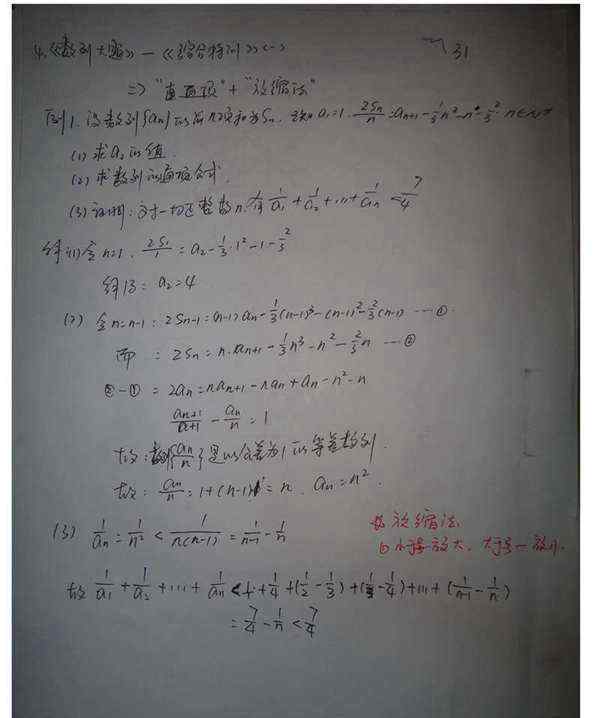 4.《数列大题》—《综合特训》<一> 31
=> "通项" + "放缩法"
例1. 设数列{an}的前n项和为Sn. 已知a1=1. 2Sn/n = an+1 - 1/3 n² - n - 2/3 n∈N*
(1) 求a2的值.
(2) 求数列的通项公式.
(3) 证明: 对一切正整数n. 有 1/a1 + 1/a2 + ... + 1/an < 7/4
解(1) 令n=1. 2S1/1 = a2 - 1/3·1² - 1 - 2/3
解得: a2=4
(2) 令n=n-1: 2Sn-1 = (n-1)an - 1/3(n-1)³ - (n-1)² - 2/3(n-1) ---①
而 : 2Sn = n·an+1 - 1/3n³ - n² - 2/3n ---②
②-① = 2an = nan+1 - nan + an - n² - n
an+1/n+1 - an/n = 1
故: 数列{an/n}是以公差为1的等差数列.
故: an/n = 1+(n-1)·1 = n. an=n².
(3) 1/an = 1/n² < 1/n(n-1) = 1/n-1 - 1/n
放缩法
①小于号一放大, 大于号一放小.
故 1/a1 + 1/a2 + ... + 1/an < 1 + 1/4 + (1/2 - 1/3) + (1/3 - 1/4) + ... + (1/n-1 - 1/n)
= 7/4 - 1/n < 7/4